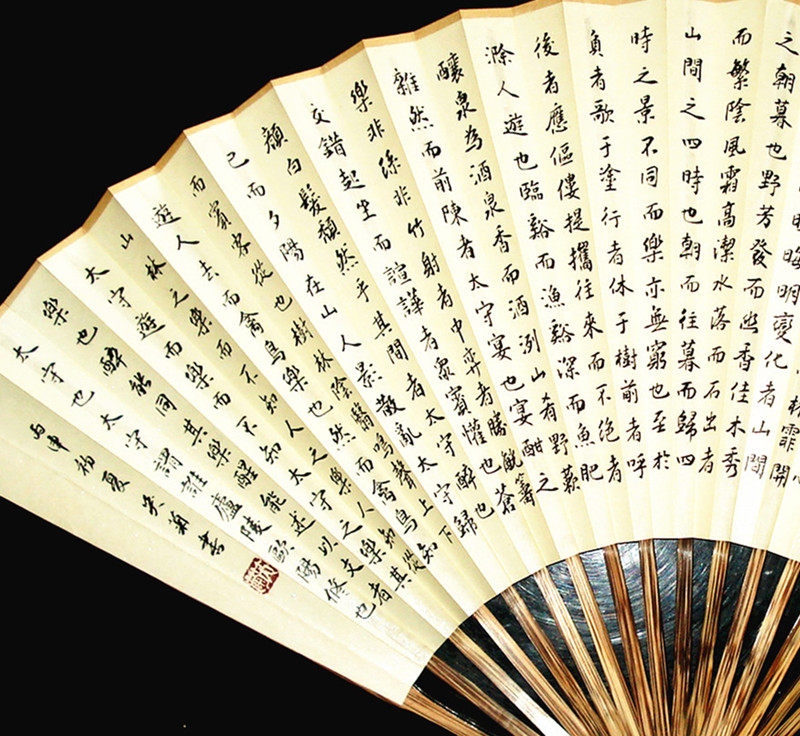 林霏開
晦明變化者山間
之朝暮也野芳發而幽香佳木秀
而繁陰風霜高潔水落而石出者
山間之四時也朝而往暮而歸四
時之景不同而樂亦無窮也至於
負者歌于塗行者休于樹前者呼
後者應傴僂提攜往來而不絕者
滁人遊也臨谿而漁谿深而魚肥
釀泉為酒泉香而酒洌山肴野蔌
雜然而前陳者太守宴也宴酣之
樂非絲非竹射者中弈者勝觥籌
交錯起坐而諠譁者眾賓懽也蒼
顏白髮頹然乎其間者太守醉也
已而夕陽在山人影散亂太守歸
而賓客從也樹林陰翳鳴聲上下
遊人去而禽鳥樂也然而禽鳥知
山林之樂而不知人之樂人知從
太守遊而樂而不知太守之樂其
樂也醉能同其樂醒能述以文者
太守也太守謂誰廬陵歐陽修也
丙申初夏朱 書